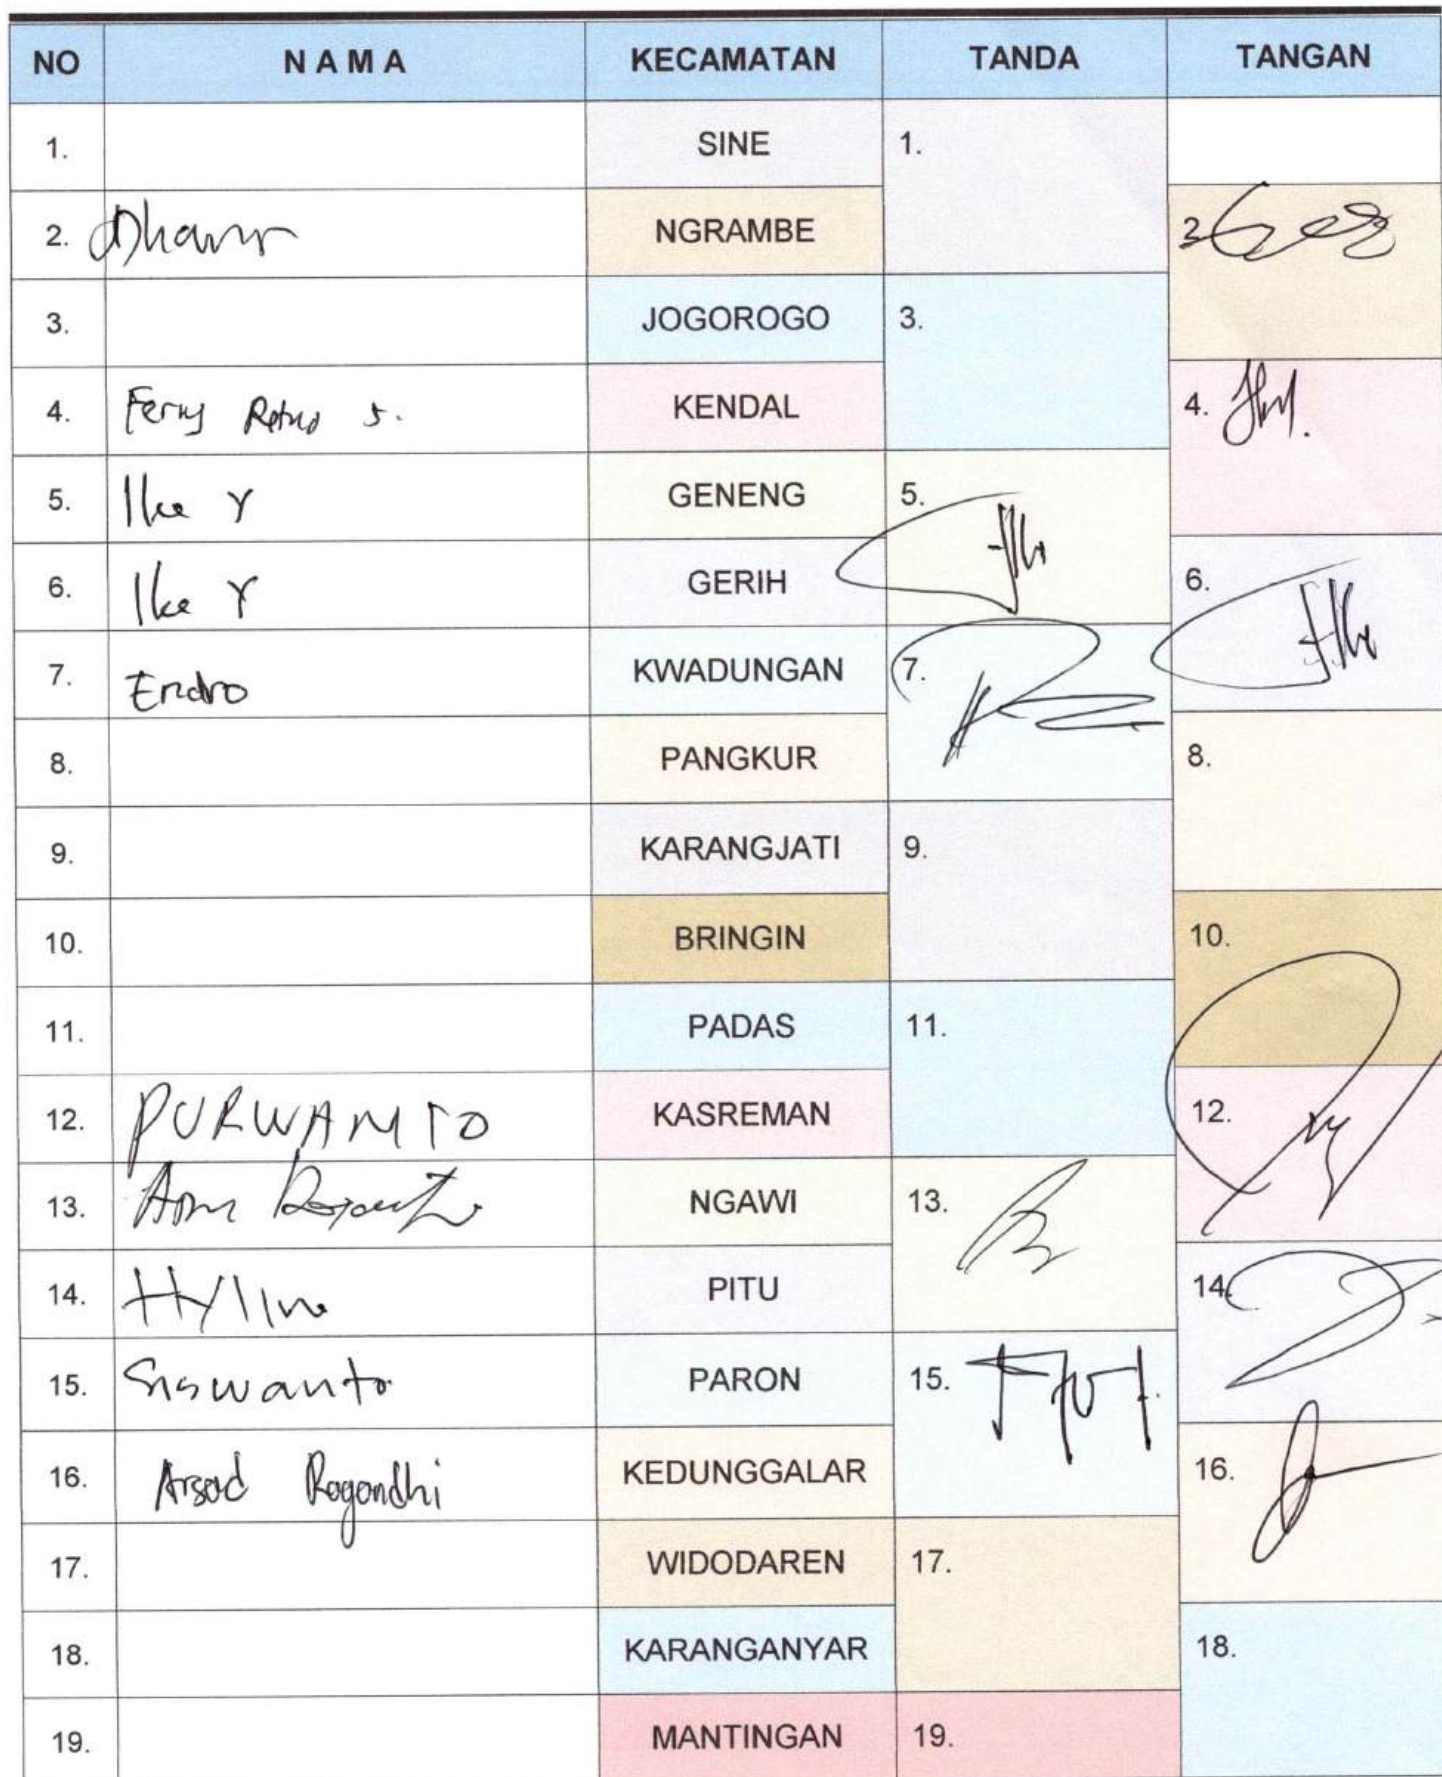 NO NAMA KECAMATAN TANDA TANGAN
1. SINE 1.
2. NGRAMBE 2
3. JOGOROGO 3.
4. Ferry Retno S. KENDAL 4.
5. Ike Y GENENG 5.
6. Ike Y GERIH 6.
7. Endro KWADUNGAN 7.
8. PANGKUR 8.
9. KARANGJATI 9.
10. BRINGIN 10.
11. PADAS 11.
12. PURWANTO KASREMAN 12.
13. NGAWI 13.
14. PITU 14.
15. Siswanto PARON 15.
16. Arsad Ragandhi KEDUNGGALAR 16.
17. WIDODAREN 17.
18. KARANGANYAR 18.
19. MANTINGAN 19.